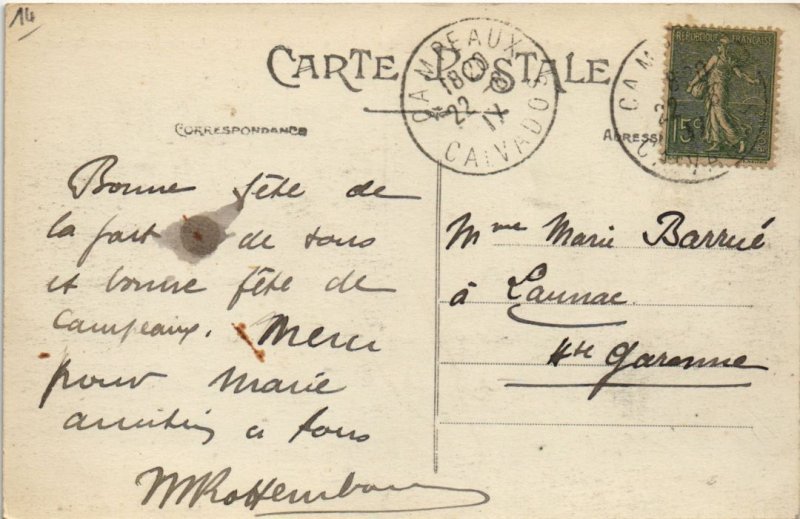 14
CARTE POSTALE
CAMPEAUX
18 20
22 IX
CALVADOS
REPUBLIQUE FRANÇAISE
15c
POSTES
CORRESPONDANCE
ADRESSE
Bonne fête de
la part de tous
et bonne fête de
Campeaux. Merci
pour Marie
amitiés à tous
Mme Marie Barrué
à Launac
Hte Garonne